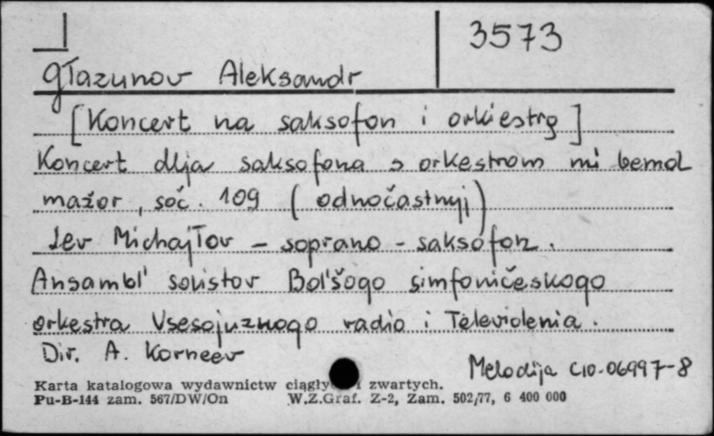 3573
Głazunov Aleksandr
[Koncert na saksofon i orkiestrę]
Koncert dlja saksofona s orkestrom mi bemol
mažor, soč. 109 (odnočastnyj)
Lev Michajłov – soprano-saksofon.
Ansambl' solistov Bol'šogo simfoničeskogo
orkestra Vsesojuznogo radio i Televidenia.
Dir. A. Korneev
Melodija C10-06997-8
Karta katalogowa wydawnictw ciągły i zwartych.
Pu-B-144 zam. 567/DW/On W.Z.Graf. Z-2, Zam. 502/77, 6 400 000